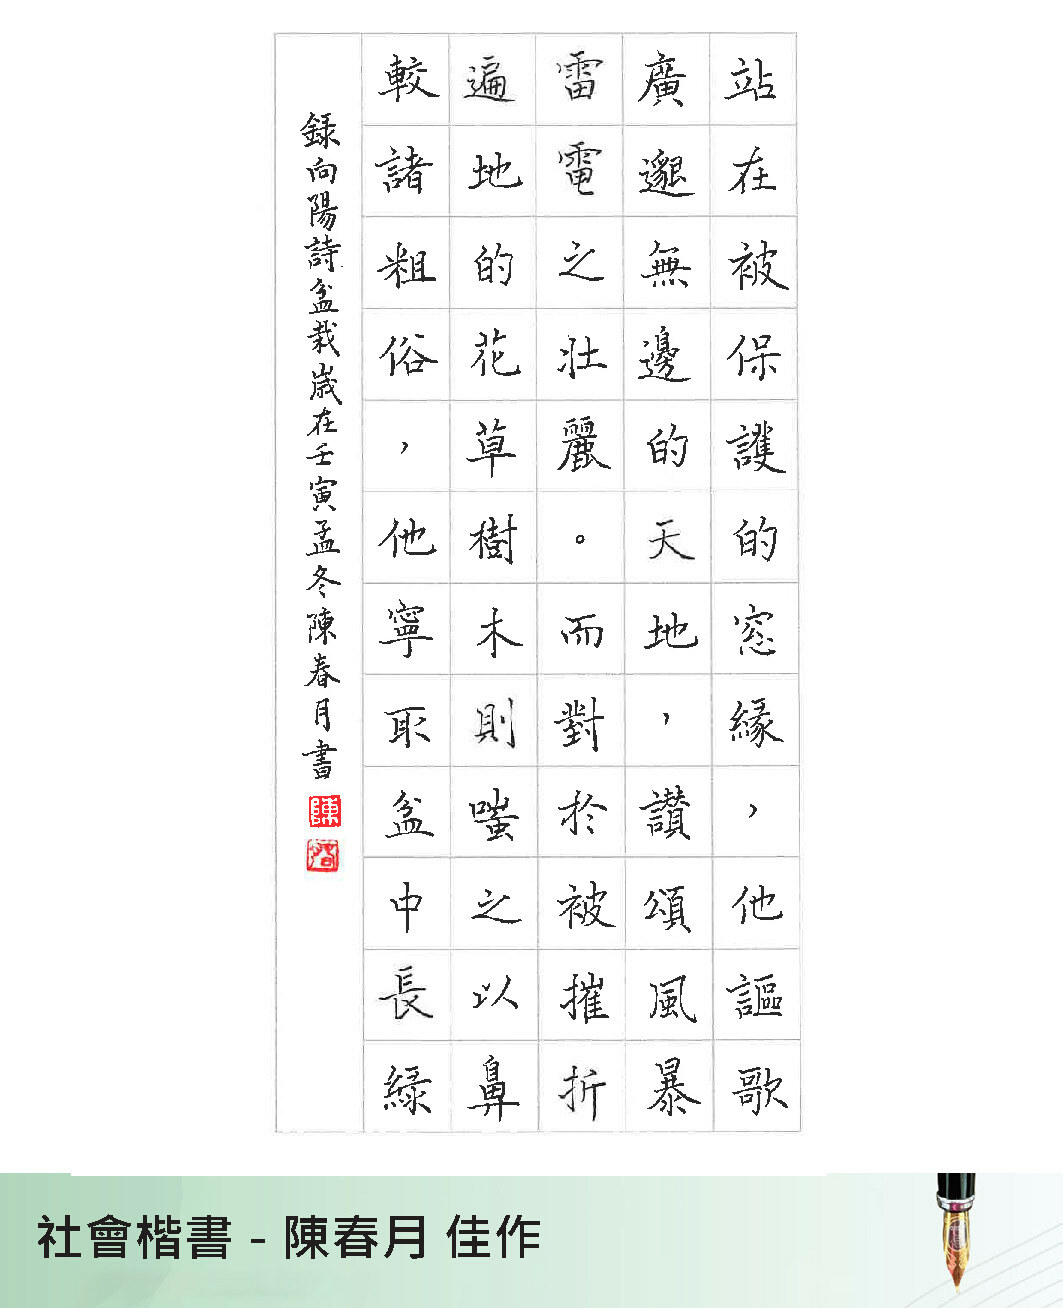 站在被保護的窓緣，他謳歌
廣邈無邊的天地，讚頌風暴
雷電之壯麗。而對於被摧折
遍地的花草樹木則嗤之以鼻
較諸粗俗，他寧取盆中長綠
録向陽詩盆栽歲在壬寅孟冬陳春月書
陳
社會楷書 - 陳春月 佳作